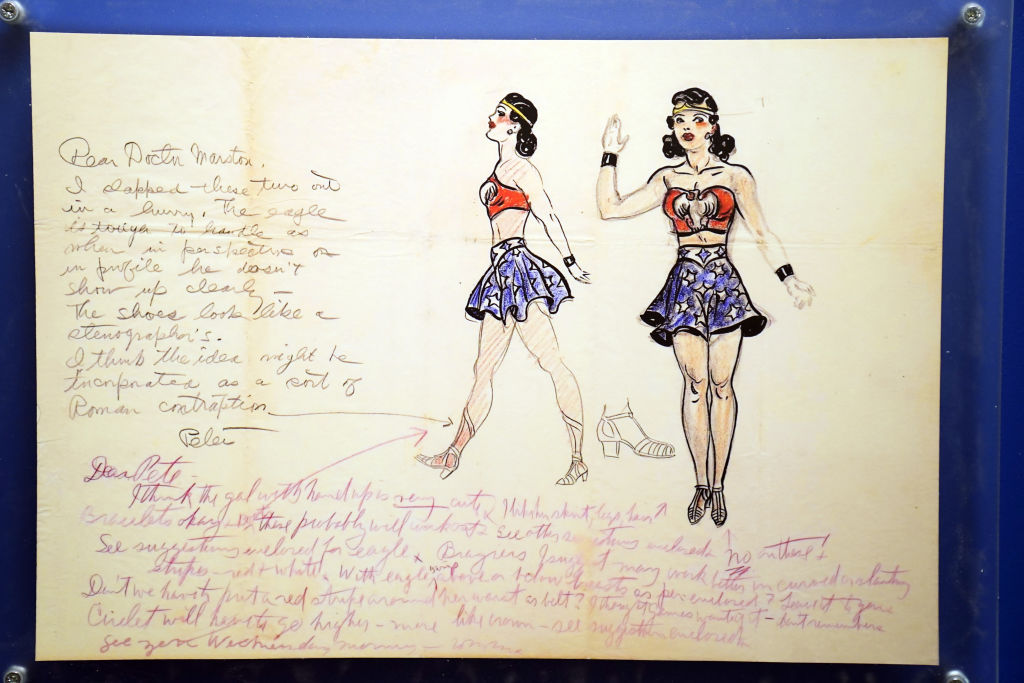 Dear Doctor Marston.
I slapped these two out
in a hurry. The eagle
is tough to handle as
when in perspective or
in profile he doesn't
show up clearly —
The shoes look like a
stenographer's.
I think the idea might be
incorporated as a sort of
Roman contraption
Peter
Dear Pete
I think the gal with hand up is very cute. I like her skirt, legs, hair.
Bracelets okay + these probably will work + see other suggestions enclosed. No on these!
See suggestions enclosed for eagle
stripes – red + white. With eagle's wings above or below breasts as per enclosed? Leave it to you.
Don't we have to put a red stripe around her waist as belt? I thought Gaines wanted it – don't remember.
Circlet will have to go higher – more like crown – see suggestions enclosed.
See you Wednesday morning –